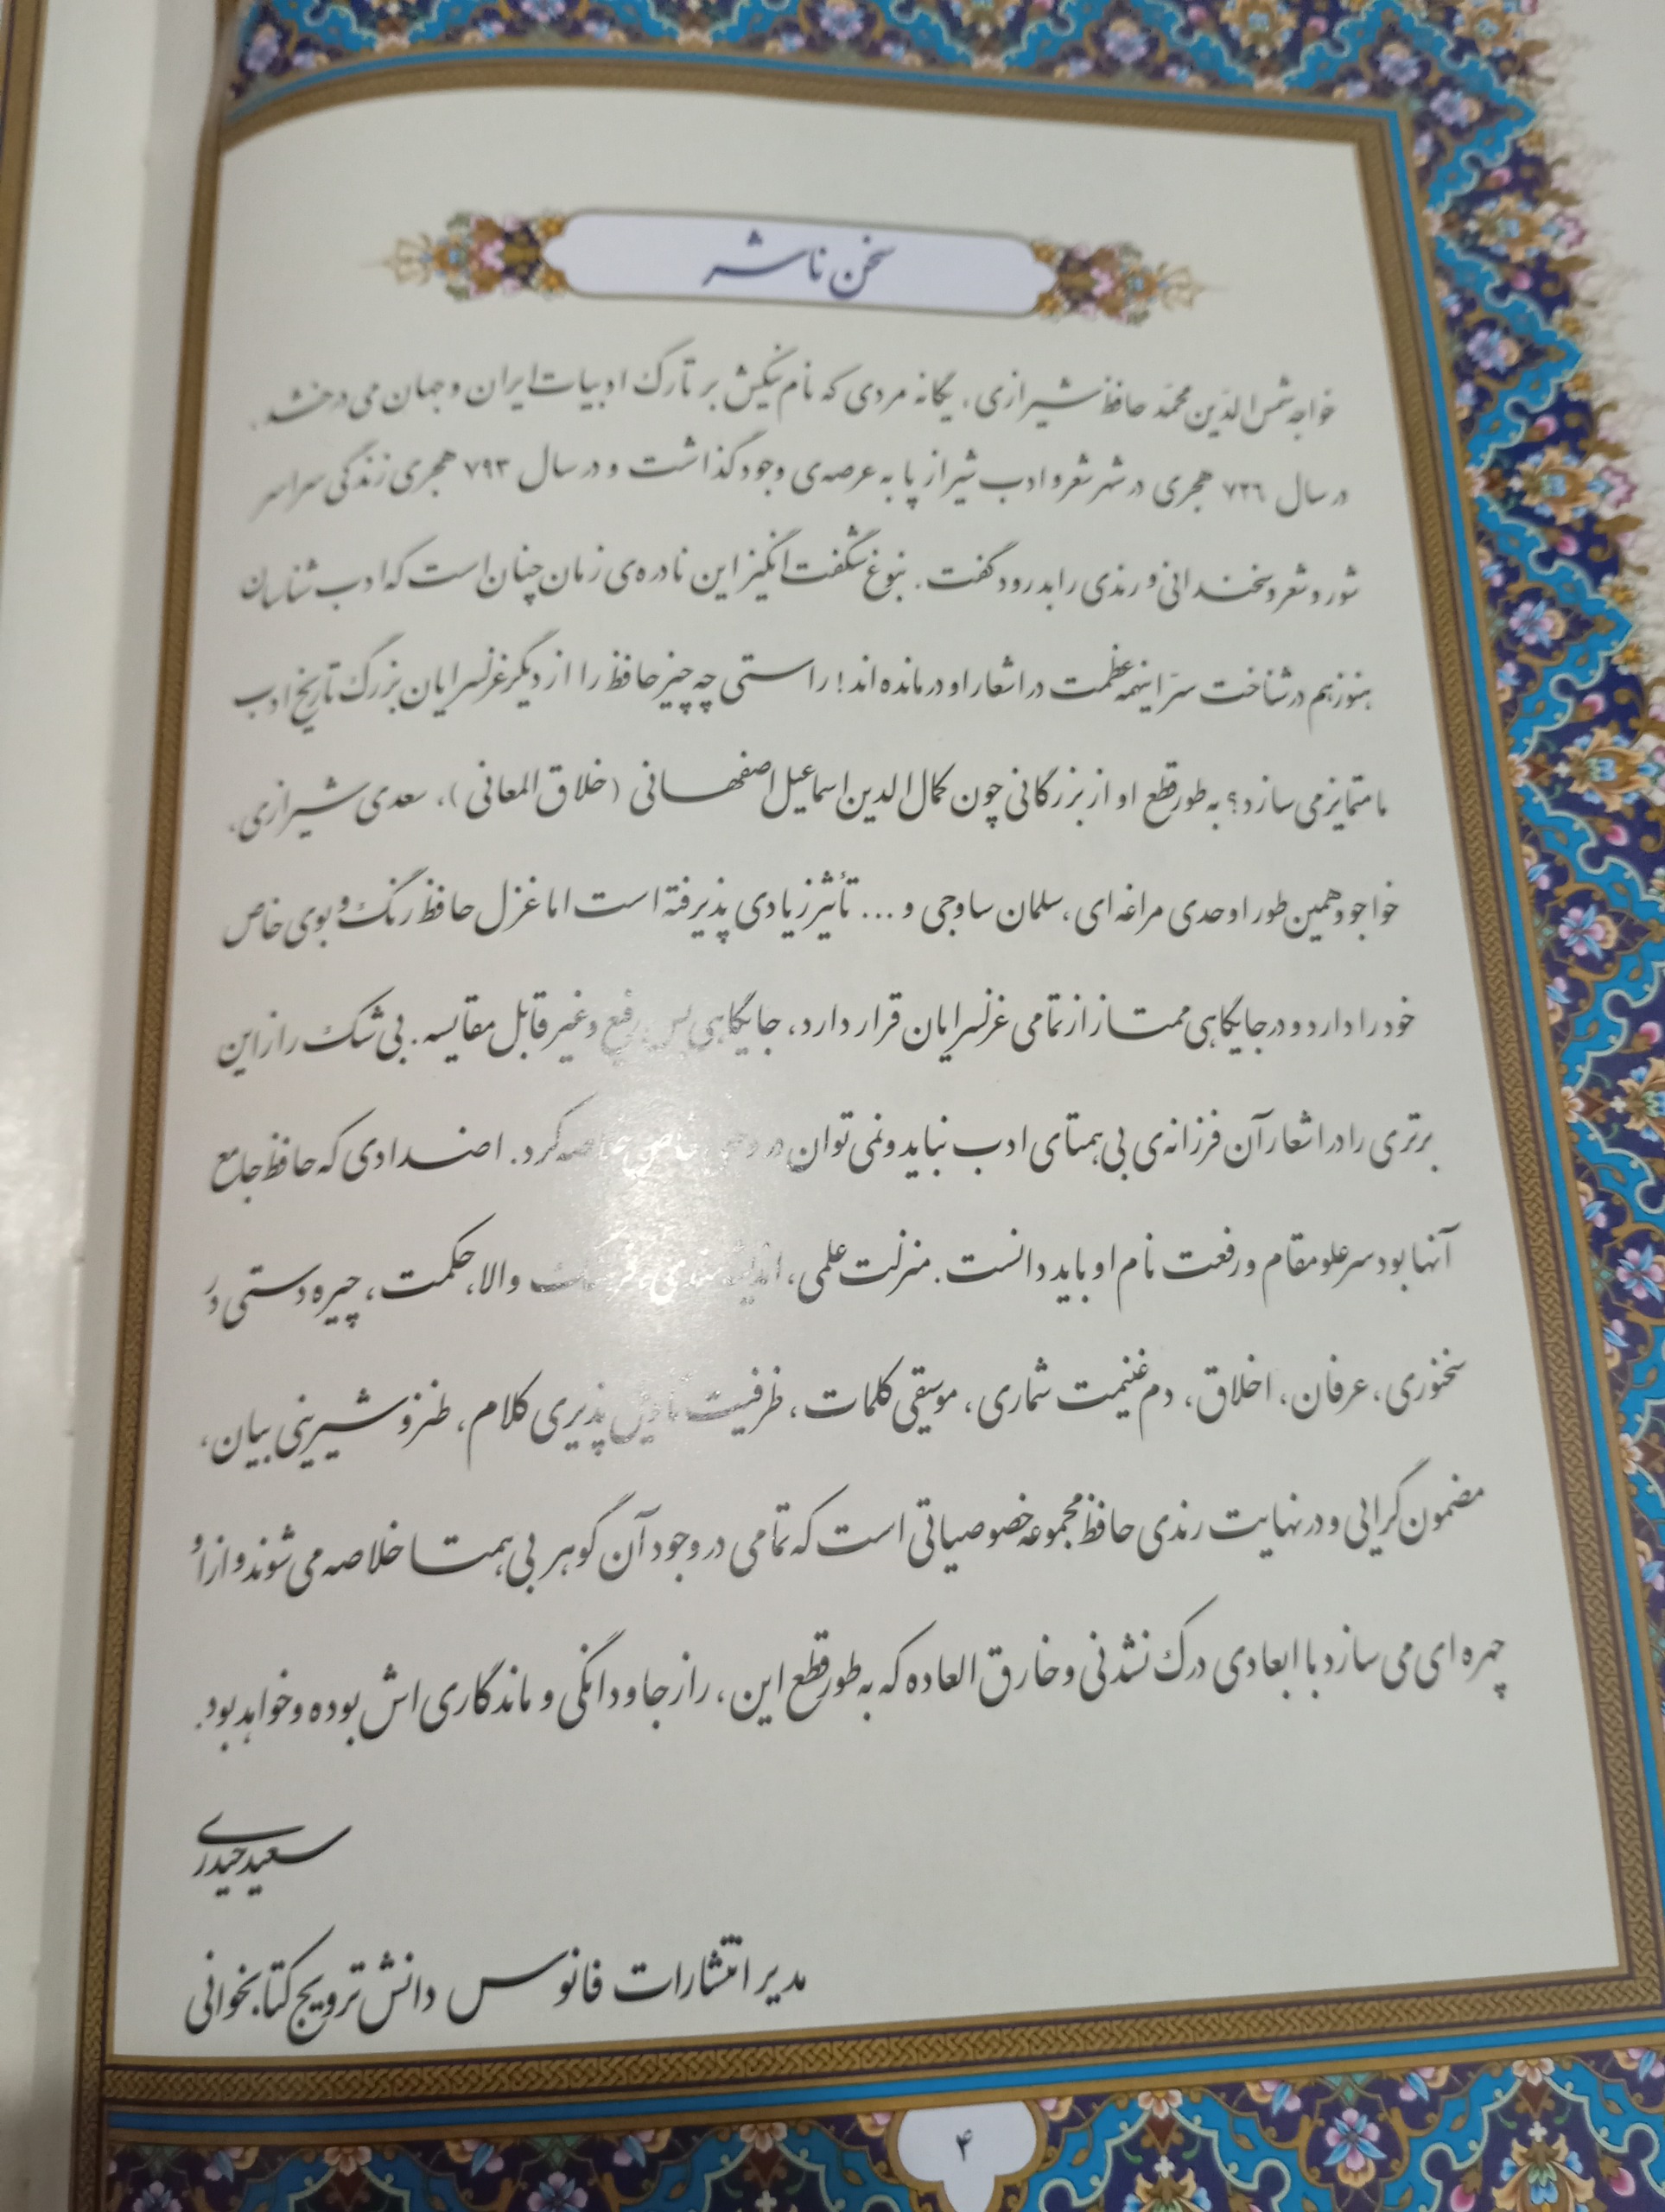 سخن ناشر
خواجه شمس الدّین محمّد حافظ شیرازی، یگانه مردی که نام نیکش بر تارک ادبیات ایران و جهان می درخشد.
در سال ۷۲۶ هجری در شهر شعر و ادب شیراز پا به عرصه ی وجود گذاشت و در سال ۷۹۳ هجری زندگی سراسر
شور و شعر و سخندانی و رندی را بدرود گفت. نبوغ شگفت انگیز این نادره ی زمان چنان است که ادب شناسان
هنوز هم در شناخت سرّ اینهمه عظمت در اشعار او درمانده اند! راستی چه چیز حافظ را از دیگر غزلسرایان بزرگ تاریخ ادب
ما متمایز می سازد؟ به طور قطع او از بزرگانی چون کمال الدین اسماعیل اصفهانی (خلاق المعانی)، سعدی شیرازی،
خواجو و همین طور اوحدی مراغه ای، سلمان ساوجی و ... تأثیر زیادی پذیرفته است اما غزل حافظ رنگ و بوی خاص
خود را دارد و در جایگاهی ممتاز از تمامی غزلسرایان قرار دارد، جایگاهی بس رفیع و غیر قابل مقایسه. بی شک راز این
برتری را در اشعار آن فرزانه ی بی همتای ادب نباید و نمی توان در خاص خلاصه کرد. اضدادی که حافظ جامع
آنها بود سر علو مقام و رفعت نام او باید دانست. منزلت علمی، والا، حکمت، چیره دستی در
سخنوری، عرفان، اخلاق، دم غنیمت شماری، موسیقی کلمات، ظرفیت تأویل پذیری کلام، طنز و شیرینی بیان،
مضمون گرایی و در نهایت رندی حافظ مجموعه خصوصیاتی است که تمامی در وجود آن گوهر بی همتا خلاصه می شوند و از او
چهره ای می سازد با ابعادی درک نشدنی و خارق العاده که به طور قطع این، راز جاودانگی و ماندگاری اش بوده و خواهد بود.
سعید حیدری
مدیر انتشارات فانوس دانش ترویج کتابخوانی
۴